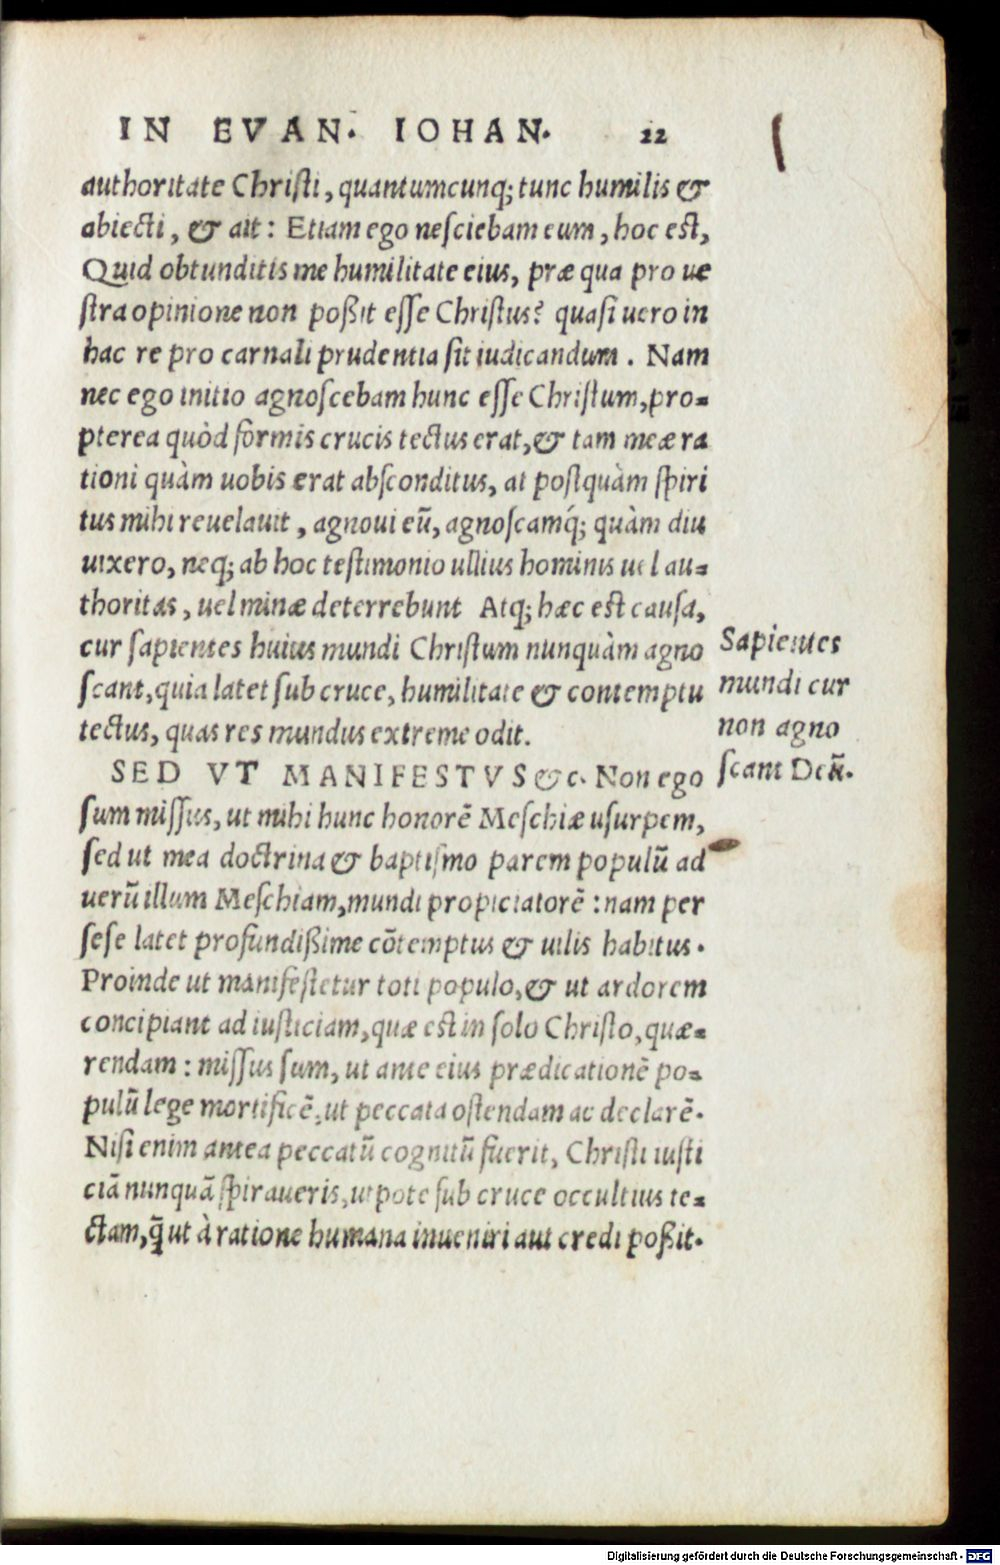 IN EVAN. IOHAN. 22
authoritate Christi, quantumcunq; tunc humilis &
abiecti, & ait: Etiam ego nesciebam eum, hoc est,
Quid obtunditis me humilitate eius, præ qua pro ue
stra opinione non poßit esse Christus? quasi uero in
hac re pro carnali prudentia sit iudicandum. Nam
nec ego initio agnoscebam hunc esse Christum, pro-
pterea quòd formis crucis tectus erat, & tam meæ ra
tioni quàm uobis erat absconditus, at postquàm spiri
tus mihi reuelauit, agnoui eũ, agnoscamq́; quàm diu
uixero, neq; ab hoc testimonio ullius hominis uel au-
thoritas, uel minæ deterrebunt Atq; hæc est causa,
cur sapientes huius mundi Christum nunquàm agno
scant, quia latet sub cruce, humilitate & contemptu
tectus, quas res mundus extreme odit.
Sapientes
mundi cur
non agno
scant Deũ.
SED VT MANIFESTVS &c. Non ego
sum missus, ut mihi hunc honorẽ Meschiæ usurpem,
sed ut mea doctrina & baptismo parem populũ ad
uerũ illum Meschiam, mundi propiciatorẽ: nam per
sese latet profundißime cõtemptus & uilis habitus.
Proinde ut manifestetur toti populo, & ut ardorem
concipiant ad iusticiam, quæ est in solo Christo, quæ-
rendam: missus sum, ut ante eius prædicationẽ po-
pulũ lege mortificẽ, ut peccata ostendam ac declarẽ.
Nisi enim antea peccatũ cognitũ fuerit, Christi iusti
ciã nunquã spiraueris, utpote sub cruce occultius te-
ctam, q̃ ut à ratione humana inueniri aut credi poßit.
Digitalisierung gefördert durch die Deutsche Forschungsgemeinschaft - DFG